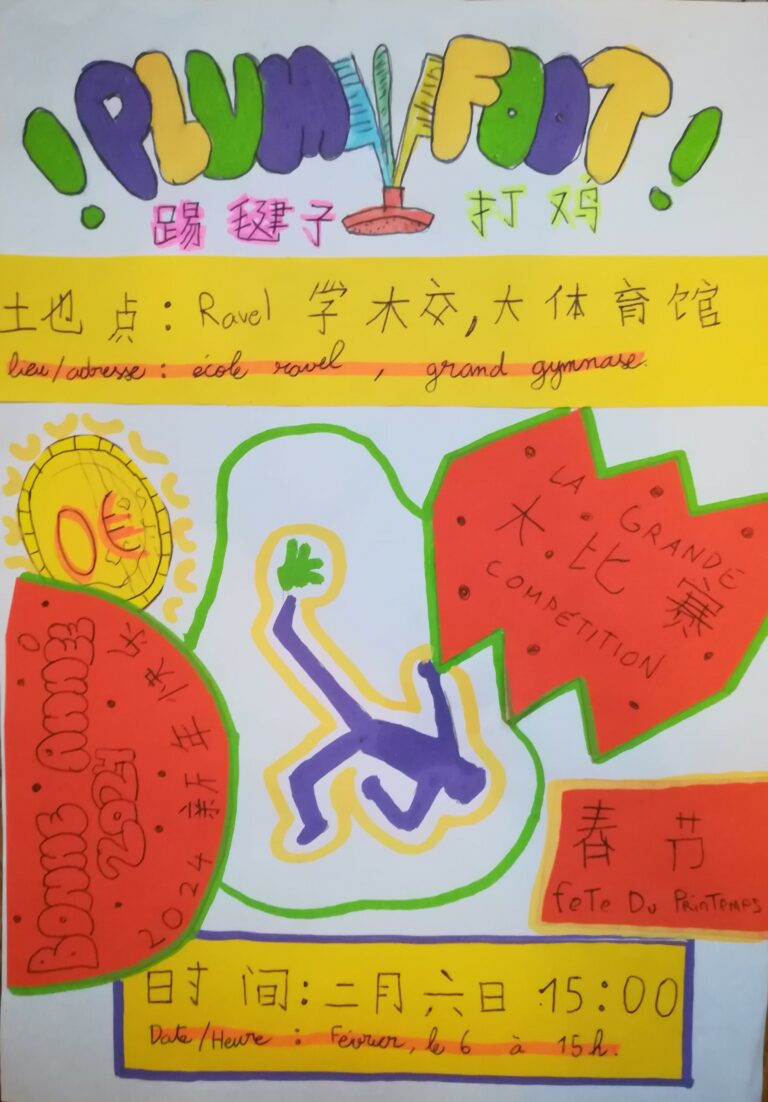 ! PLUM FOOT !
踢毽子 打鸡
地点: Ravel 学校, 大体育馆
lieu/adresse : école ravel , grand gymnase.
0€
LA GRANDE
大比赛
COMPÉTITION
BONNE ANNÉE
2024
2024 新年快乐
春节
feTe Du PrinTemps
时间: 二月六日 15:00
Date/Heure : Février, le 6 à 15h.